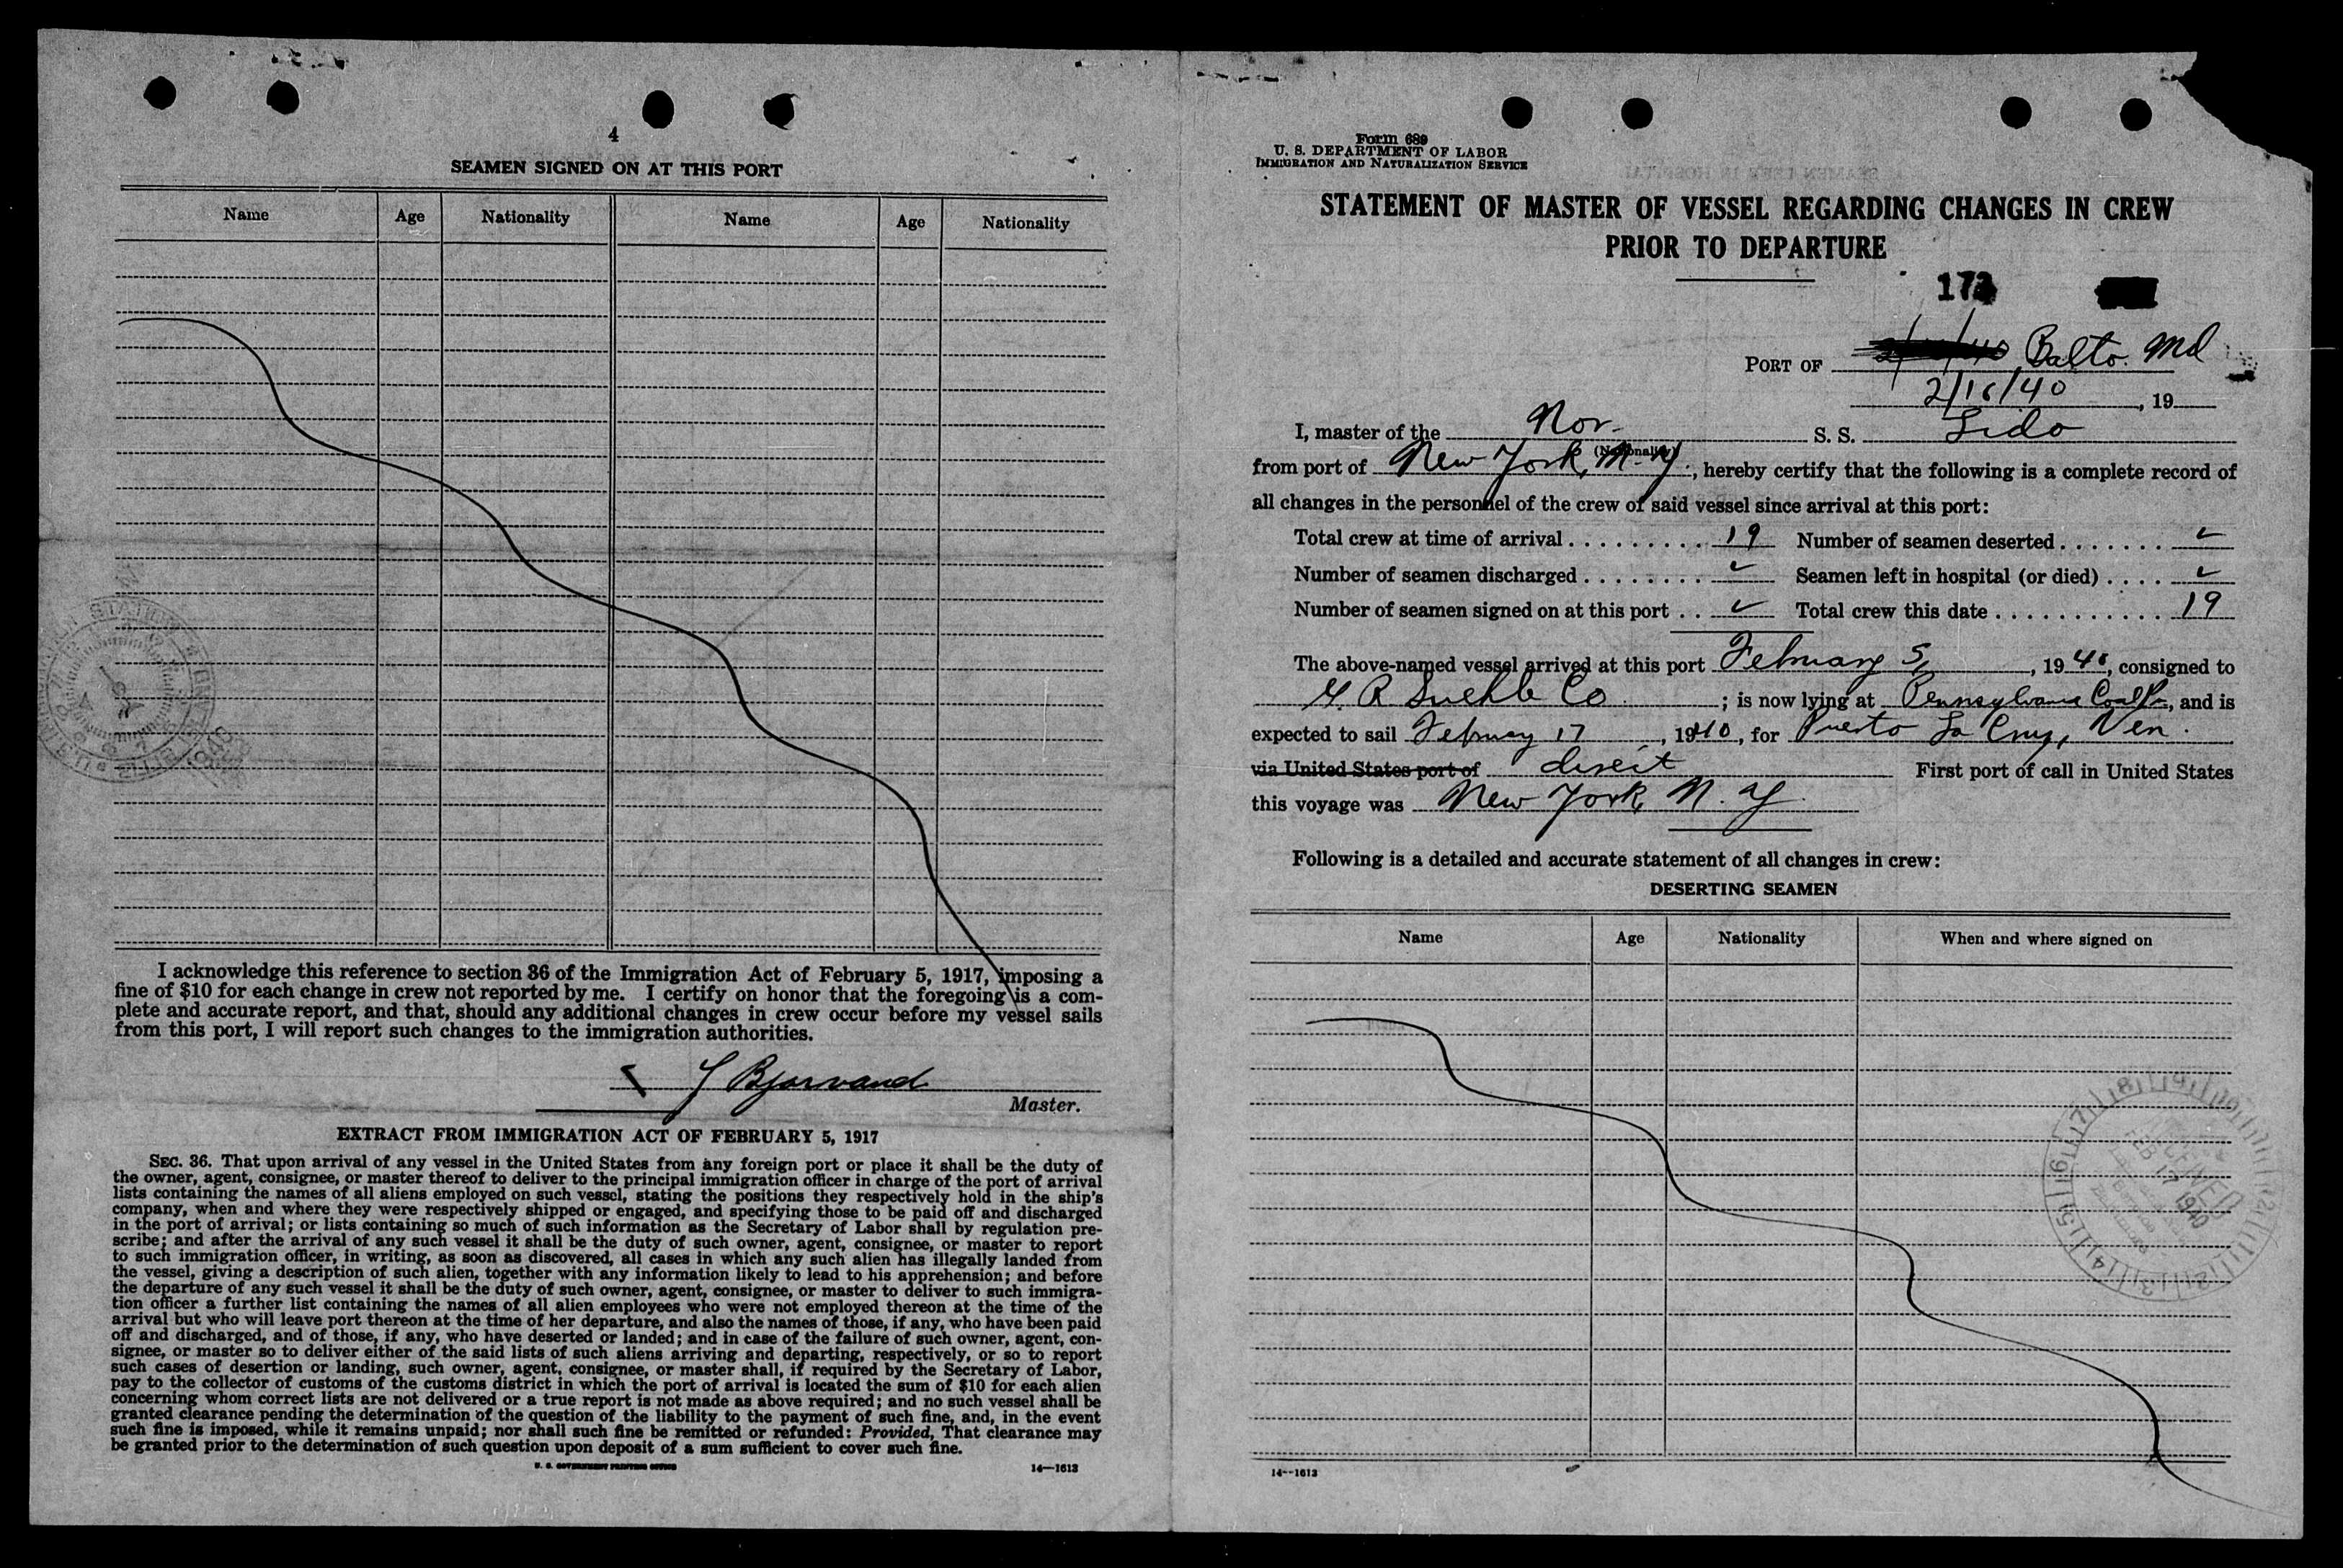 4
SEAMEN SIGNED ON AT THIS PORT
Name Age Nationality Name Age Nationality
I acknowledge this reference to section 36 of the Immigration Act of February 5, 1917, imposing a
fine of $10 for each change in crew not reported by me. I certify on honor that the foregoing is a com-
plete and accurate report, and that, should any additional changes in crew occur before my vessel sails
from this port, I will report such changes to the immigration authorities.
Bjorvand
Master.
EXTRACT FROM IMMIGRATION ACT OF FEBRUARY 5, 1917
SEC. 36. That upon arrival of any vessel in the United States from any foreign port or place it shall be the duty of
the owner, agent, consignee, or master thereof to deliver to the principal immigration officer in charge of the port of arrival
lists containing the names of all aliens employed on such vessel, stating the positions they respectively hold in the ship's
company, when and where they were respectively shipped or engaged, and specifying those to be paid off and discharged
in the port of arrival; or lists containing so much of such information as the Secretary of Labor shall by regulation pre-
scribe; and after the arrival of any such vessel it shall be the duty of such owner, agent, consignee, or master to report
to such immigration officer, in writing, as soon as discovered, all cases in which any such alien has illegally landed from
the vessel, giving a description of such alien, together with any information likely to lead to his apprehension; and before
the departure of any such vessel it shall be the duty of such owner, agent, consignee, or master to deliver to such immigra-
tion officer a further list containing the names of all alien employees who were not employed thereon at the time of the
arrival but who will leave port thereon at the time of her departure, and also the names of those, if any, who have been paid
off and discharged, and of those, if any, who have deserted or landed; and in case of the failure of such owner, agent, con-
signee, or master so to deliver either of the said lists of such aliens arriving and departing, respectively, or so to report
such cases of desertion or landing, such owner, agent, consignee, or master shall, if required by the Secretary of Labor,
pay to the collector of customs of the customs district in which the port of arrival is located the sum of $10 for each alien
concerning whom correct lists are not delivered or a true report is not made as above required; and no such vessel shall be
granted clearance pending the determination of the question of the liability to the payment of such fine, and, in the event
such fine is imposed, while it remains unpaid; nor shall such fine be remitted or refunded: Provided, That clearance may
be granted prior to the determination of such question upon deposit of a sum sufficient to cover such fine.
U. S. GOVERNMENT PRINTING OFFICE 14—1613
Form 689
U. S. DEPARTMENT OF LABOR
IMMIGRATION AND NATURALIZATION SERVICE
STATEMENT OF MASTER OF VESSEL REGARDING CHANGES IN CREW
PRIOR TO DEPARTURE
PORT OF Balto. Md
2/16/40, 19
I, master of the Nor. S. S. Lido
(Nationality)
from port of New York, N. Y., hereby certify that the following is a complete record of
all changes in the personnel of the crew of said vessel since arrival at this port:
Total crew at time of arrival 19 Number of seamen deserted ✓
Number of seamen discharged ✓ Seamen left in hospital (or died) ✓
Number of seamen signed on at this port ✓ Total crew this date 19
The above-named vessel arrived at this port February 5, 1940, consigned to
Co ; is now lying at Pennsylvania Coal, and is
expected to sail February 17, 1940, for Puerto La Cruz, Ven.
via United States port of direct First port of call in United States
this voyage was New York, N. Y.
Following is a detailed and accurate statement of all changes in crew:
DESERTING SEAMEN
Name Age Nationality When and where signed on
FEB 17 1940
14—1613